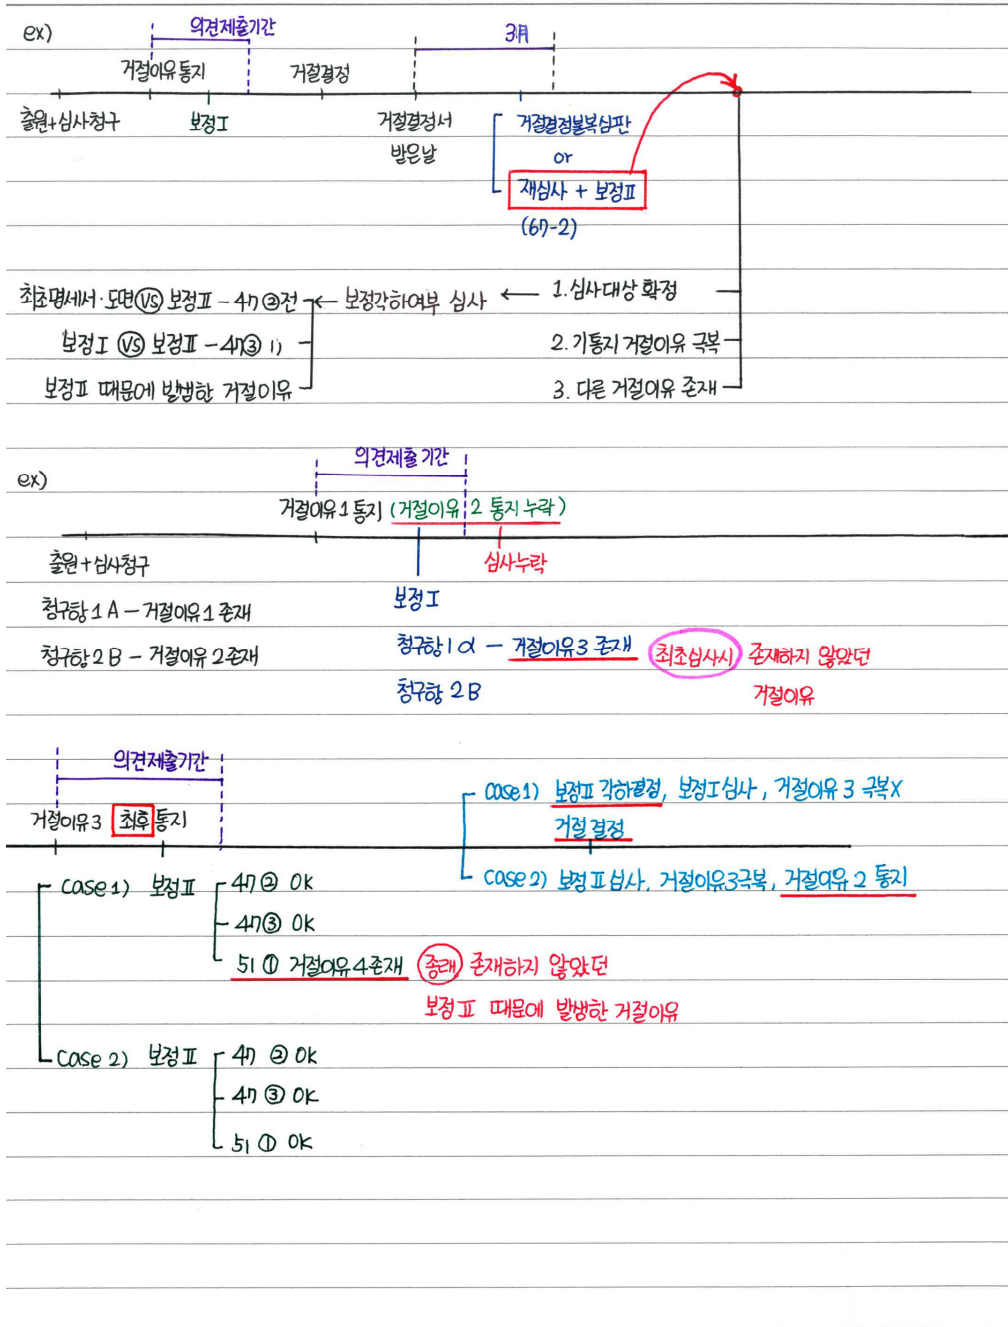 ex)
의견제출기간
3月
거절이유통지
거절결정
출원+심사청구
보정Ⅰ
거절결정서
받은날
거절결정불복심판
or
재심사 + 보정Ⅱ
(67-2)
최초명세서·도면 VS 보정Ⅱ - 47②전 ← 보정각하여부 심사 ← 1. 심사대상 확정
보정Ⅰ VS 보정Ⅱ - 47③ 1)
2. 기통지 거절이유 극복
보정Ⅱ 때문에 발생한 거절이유
3. 다른 거절이유 존재
ex)
의견제출기간
거절이유1 통지 (거절이유 2 통지 누락)
출원+심사청구
심사누락
보정Ⅰ
청구항 1 A - 거절이유1 존재
청구항 2 B - 거절이유 2 존재
청구항 1 α - 거절이유3 존재
최초심사시 존재하지 않았던
거절이유
청구항 2 B
의견제출기간
거절이유3 최후 통지
case1) 보정Ⅱ 각하결정, 보정Ⅰ심사, 거절이유 3 극복X
거절결정
case 2) 보정Ⅱ 심사, 거절이유3극복, 거절이유 2 통지
case 1) 보정Ⅱ
47② OK
47③ OK
51① 거절이유4존재
종래 존재하지 않았던
보정Ⅱ 때문에 발생한 거절이유
case 2) 보정Ⅱ
47 ② OK
47 ③ OK
51 ① OK